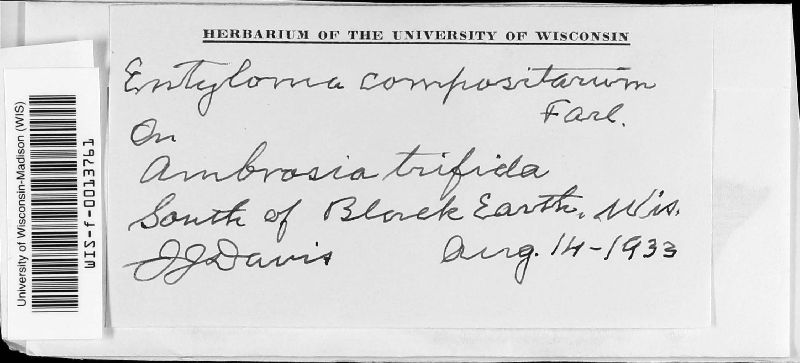 HERBARIUM OF THE UNIVERSITY OF WISCONSIN
Entyloma compositarum
Farl.
On
Ambrosia trifida
South of Black Earth, Wis.
JJDavis Aug. 14-1933
University of Wisconsin-Madison (WIS)
WIS-f-0013761